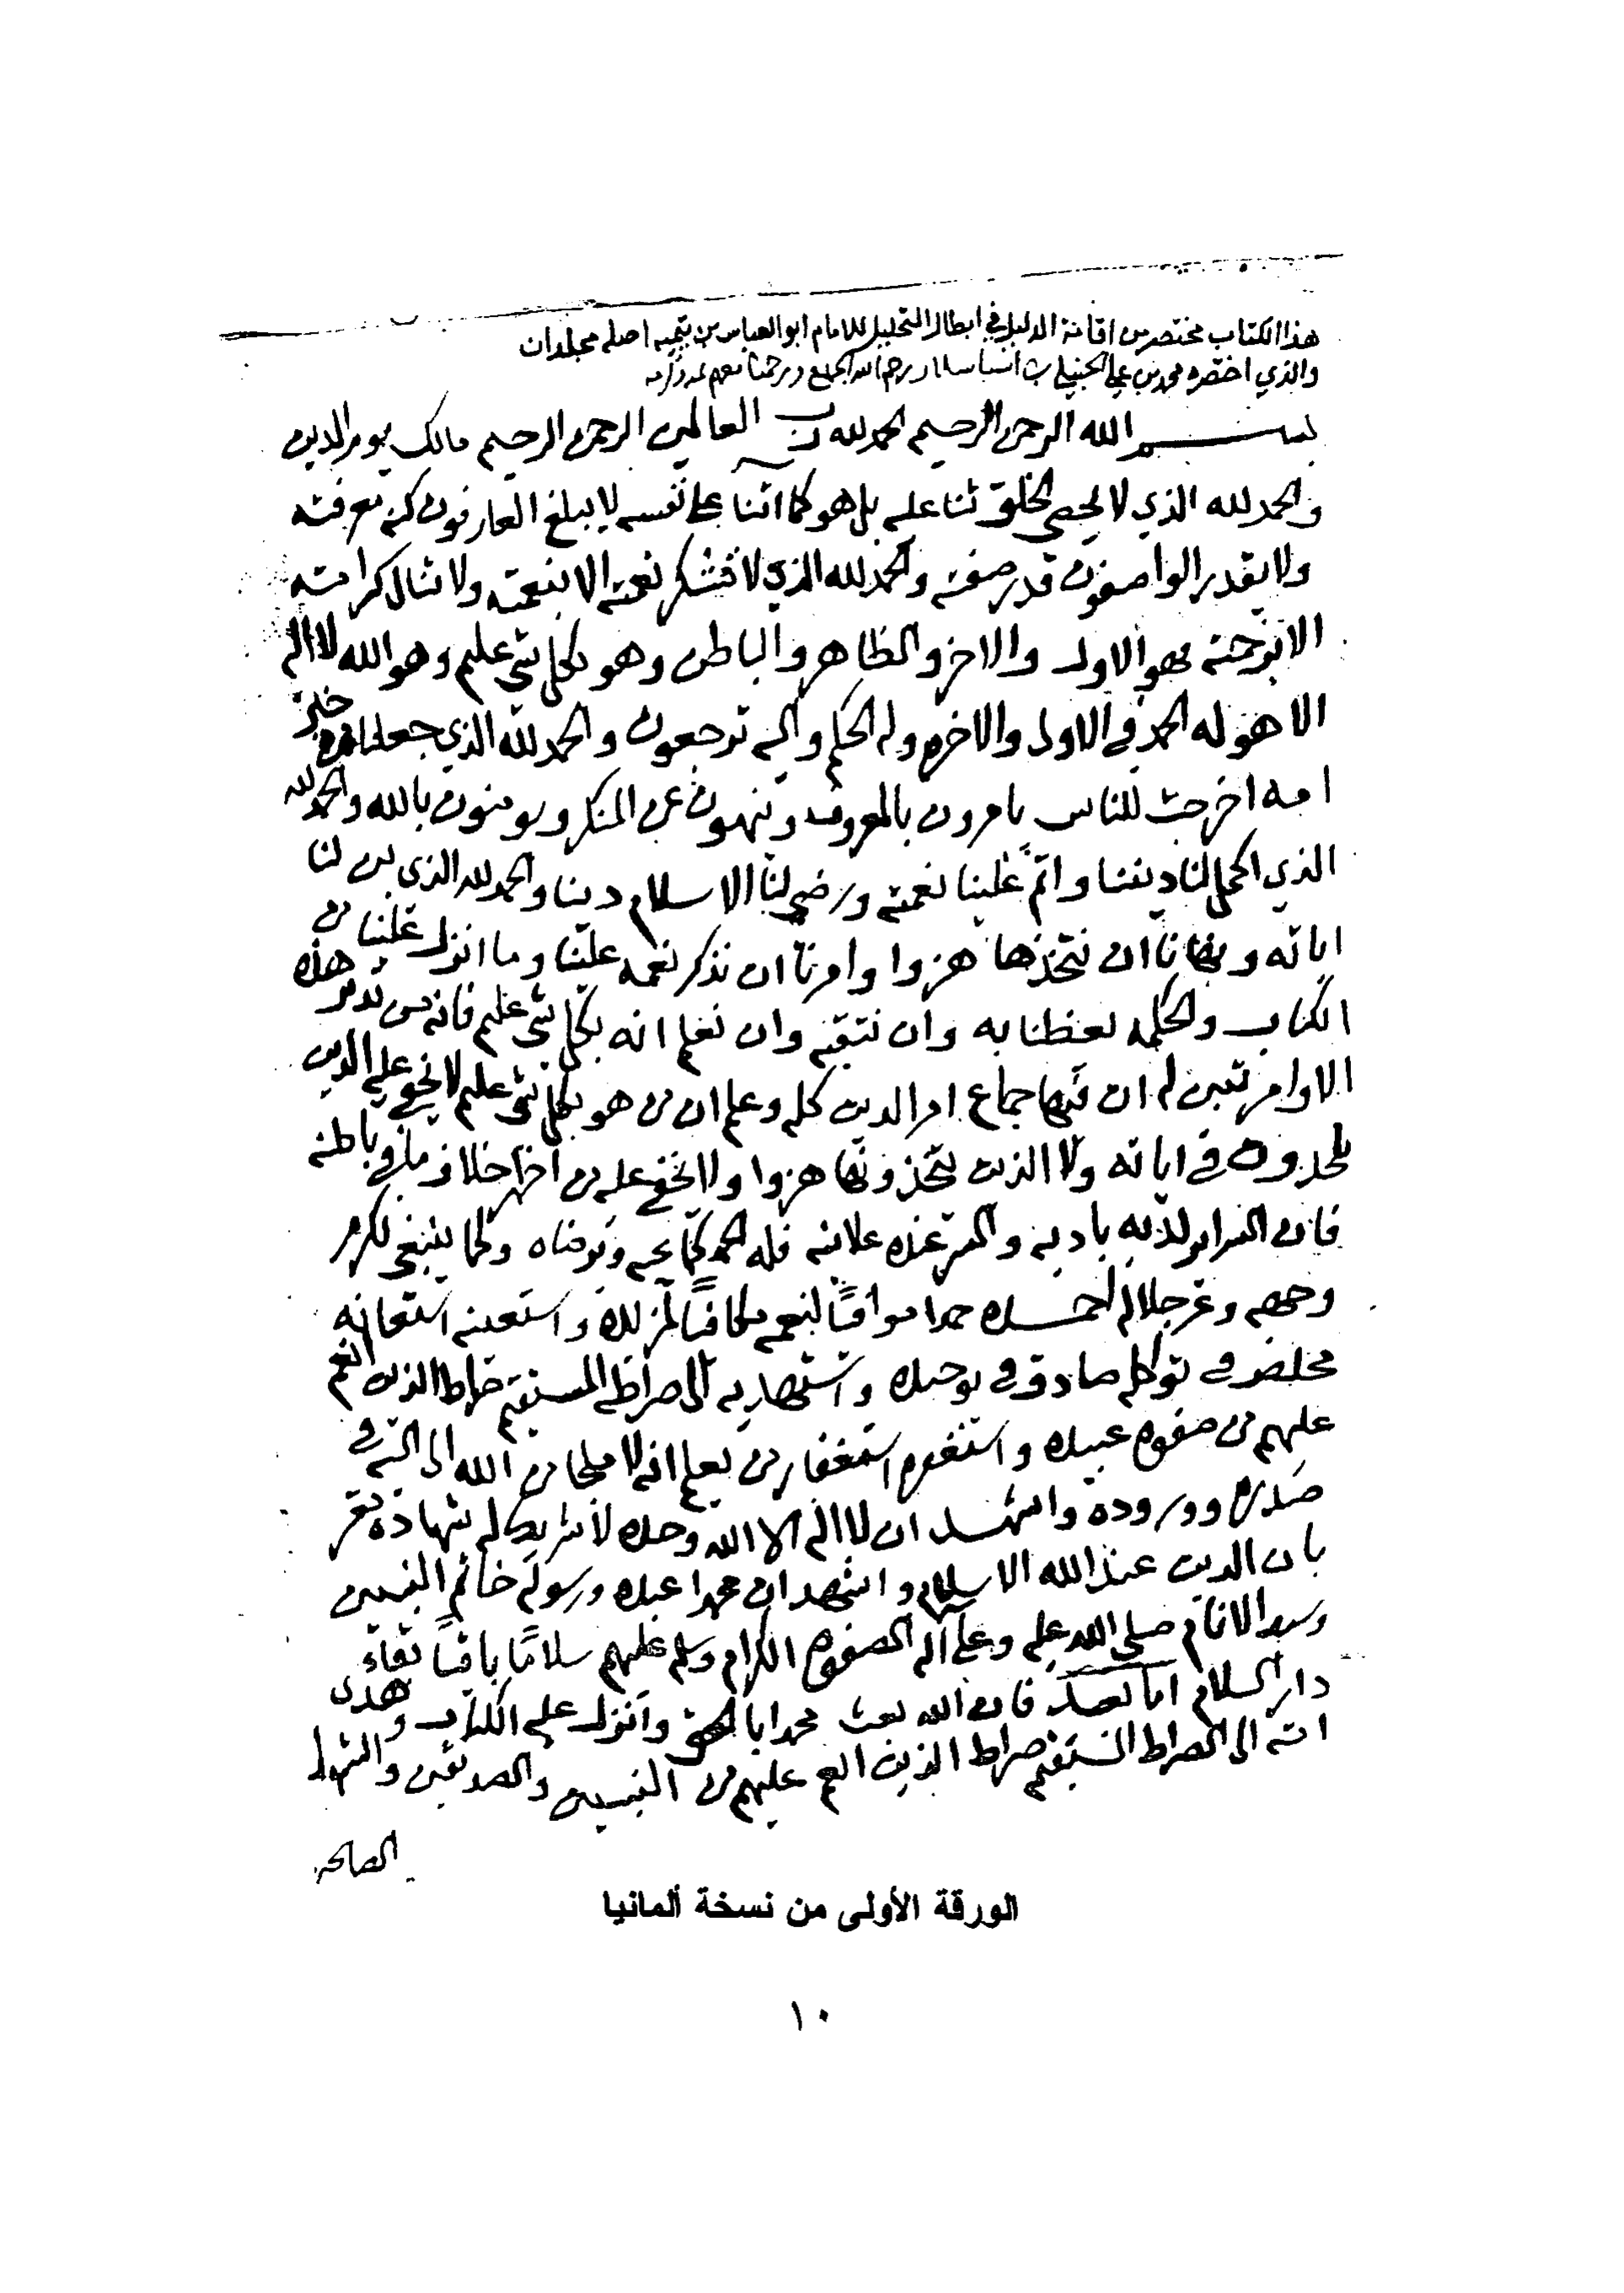 هذا الكتاب مختصر من اقامة الدليل في ابطال التحليل للامام ابو العباس بن تيميه اصله مجلدان
والذي اختصره محمد بن علي الحنبلي رحم الله الجميع ورحمنا معهم
بسم الله الرحمن الرحيم الحمد لله رب العالمين الرحمن الرحيم مالك يوم الدين
والحمد لله الذي لا يحصي الخلق ثنا عليه بل هو كما اثنا على نفسه لا يبلغ العارفون كنه معرفته
ولا يقدر الواصفون قدر صفته والحمد لله الذي لا تشكر نعمته الا بنعمته ولا تنال كرامته
الا برحمته فهو الاول والاخر والظاهر والباطن وهو بكل شي عليم وهو الله لا اله
الا هو له الحمد في الاولى والاخره وله الحكم واليه ترجعون والحمد لله الذي جعلنا من خير
امه اخرجت للناس يامرون بالمعروف وينهون عن المنكر ويومنون بالله والحمد لله
الذي اكمل لنا ديننا واتم علينا نعمته ورضي لنا الاسلام دينا والحمد لله الذي بين لنا
اياته ونهانا ان نتخذها هزوا وامرنا ان نذكر نعمه علينا وما انزل علينا من
الكتاب والحكمه يعظنا به وان نتقيه وان نعلم انه بكل شي عليم فانه من تدبر هذه
الاوامر تبين له ان فيها جماع امر الدين كله وعلم ان من هو بكل شي عليم لا يخفى عليه الذين
يلحدون في اياته ولا الذين يتخذونها هزوا ولا يخفى عليه من اظهر خلاف ما في باطنه
فان السراير لديه باديه والسر عنده علانيه فله الحمد كما يحبه ويرضاه وكما ينبغي لكرم
وجهه وعز جلاله احمده حمدا موافيا لنعمه مكافيا لمزيده واستعينه استعانة
مخلص في توكله صادق في توحيده واستهديه الى صراطه المستقيم صراط الذين انعم
عليهم من صفوة عبيده واستغفره استغفار من يعلم انه لا ملجا من الله الا اليه في
صدوره ووروده واشهد ان لا اله الا الله وحده لا شريك له شهادة مقر
بان الدين عند الله الاسلام واشهد ان محمدا عبده ورسوله خاتم النبيين
وسيد الانام صلى الله عليه وعلى اله الصفوة الكرام وسلم عليهم سلاما باقيا بقاء
دار السلام اما بعد فان الله بعث محمدا بالحق وانزل عليه الكتاب وهدى
امته الى الصراط المستقيم صراط الذين انعم عليهم من النبيين والصديقين والشهدا
الصالحين
الورقة الأولى من نسخة ألمانيا
١٠